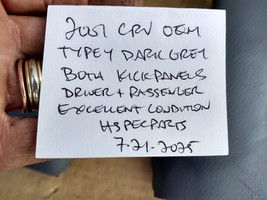 2001 CRV OEM
TYPEY DARK GREY
BOTH KICK PANELS
DRIVER + PASSENGER
EXCELLENT CONDITION
HSPECPARTS
7-21-2025